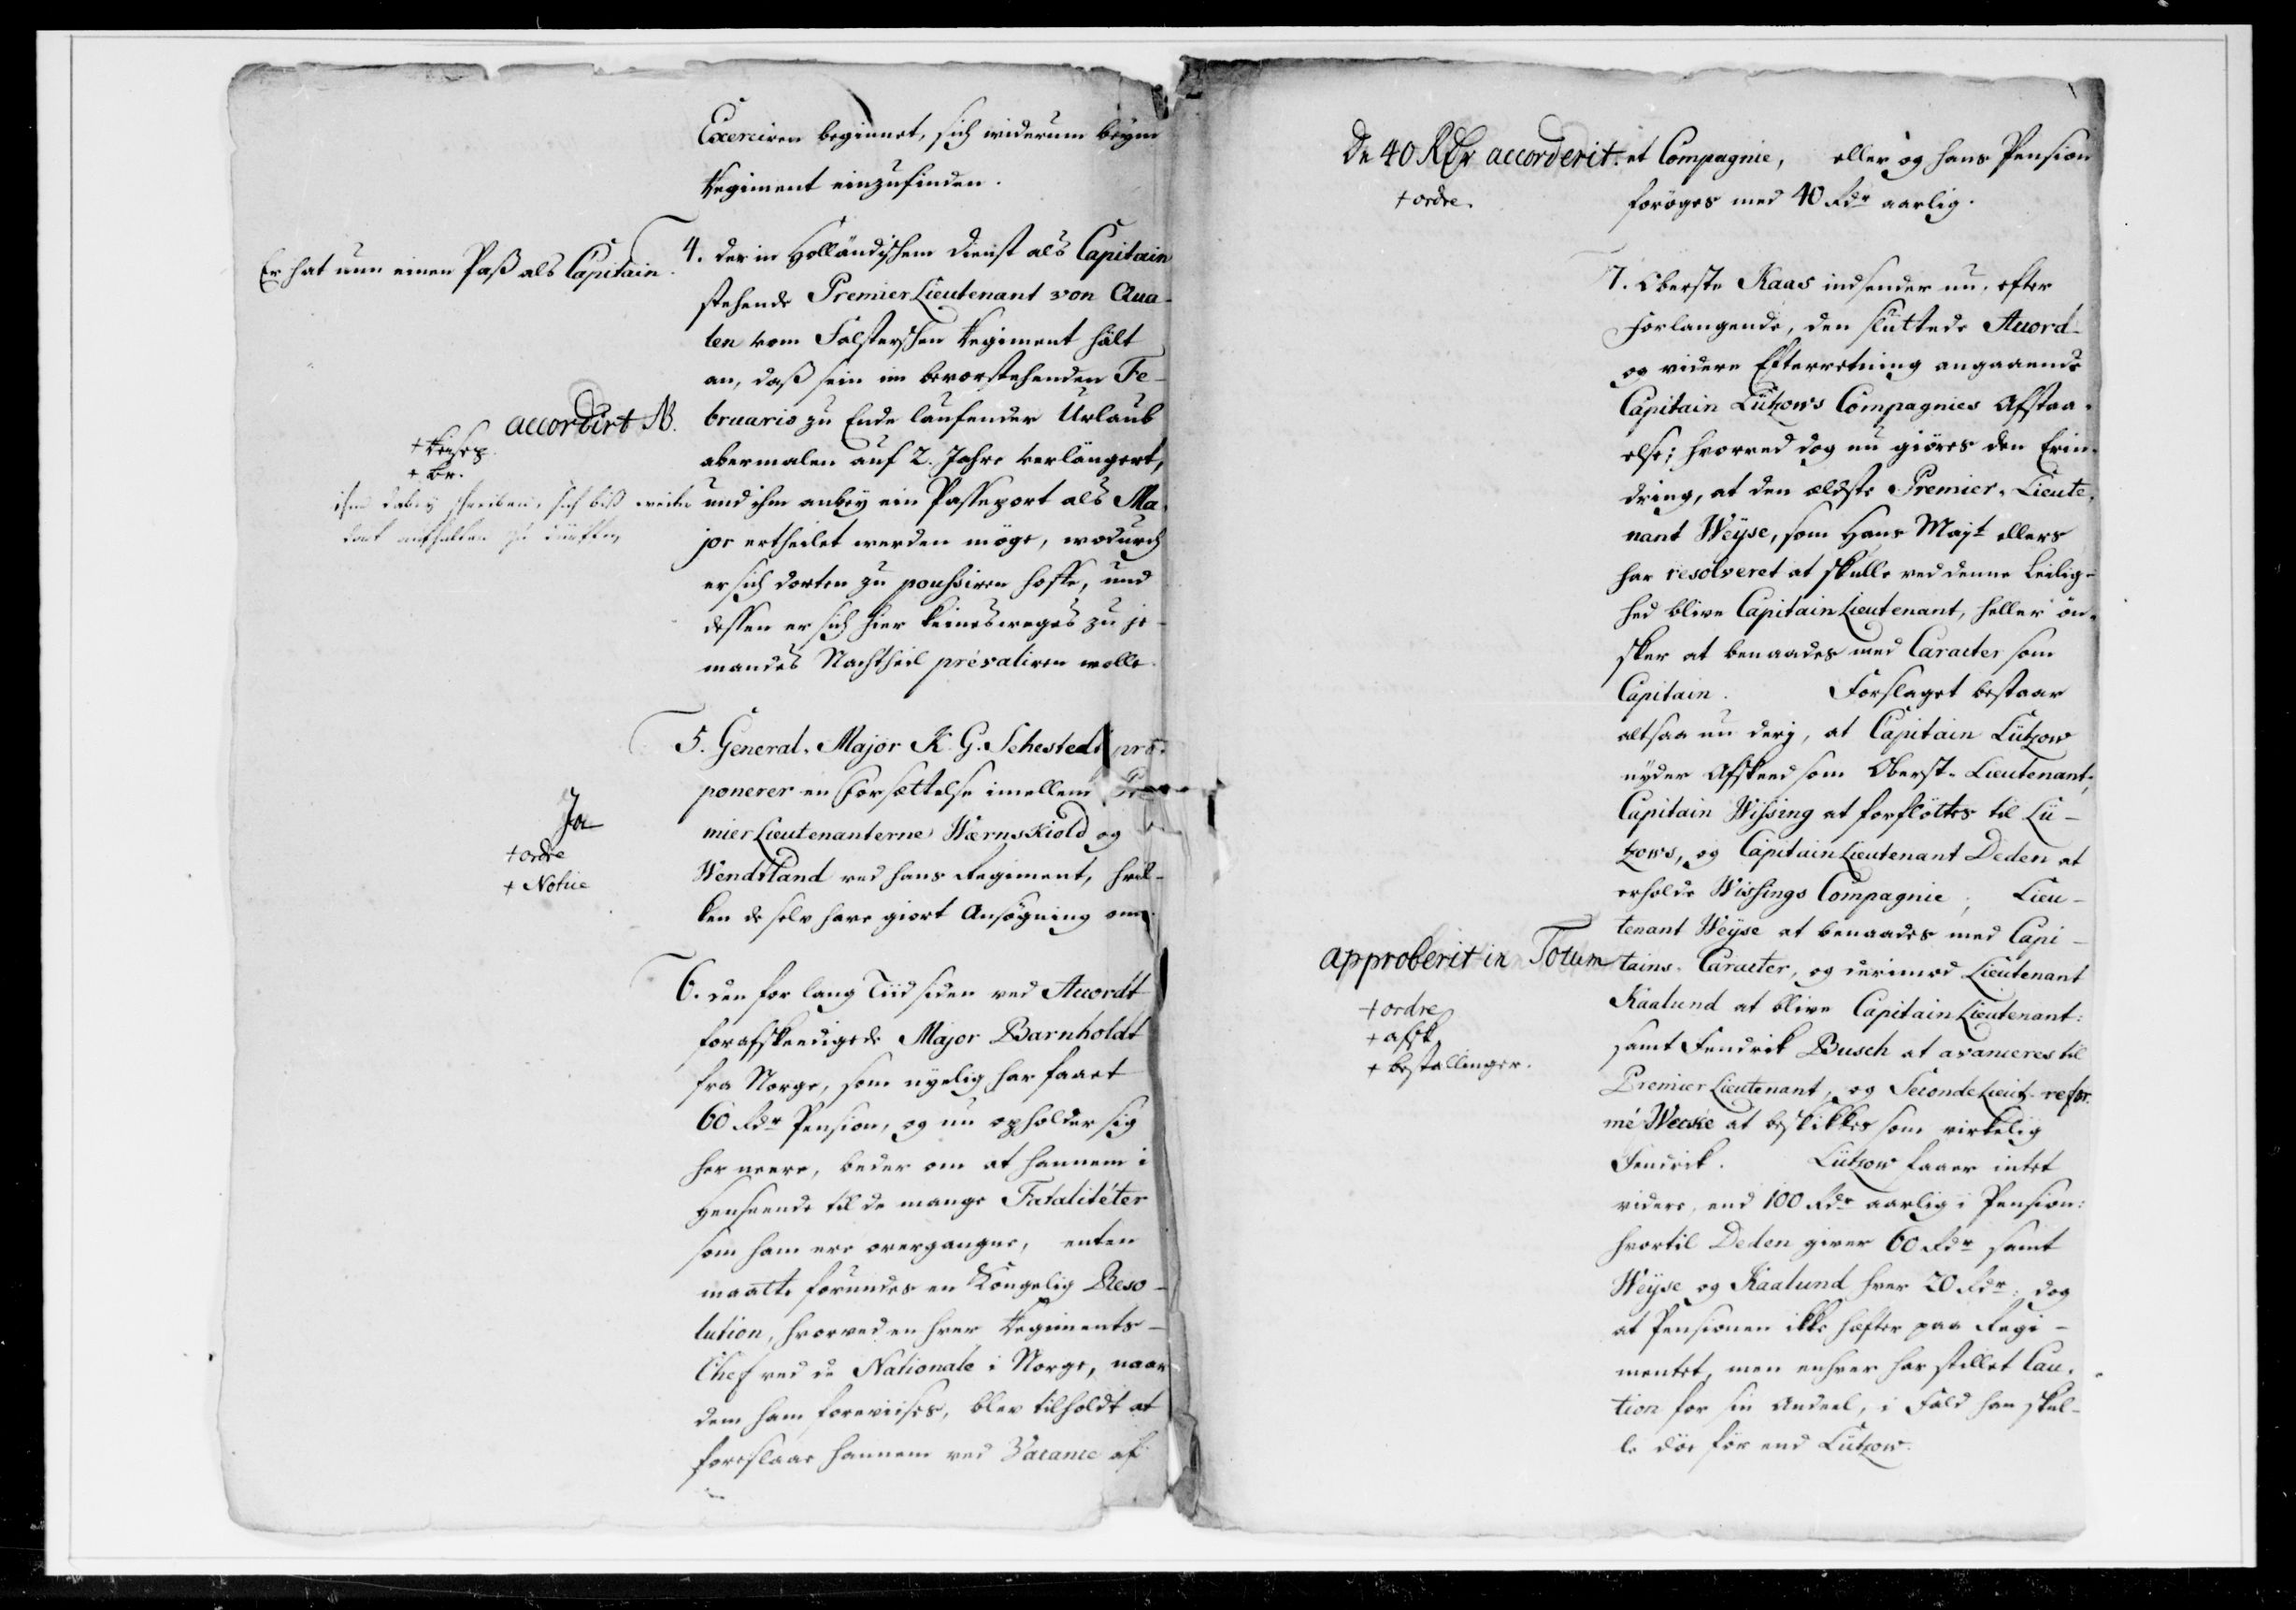 Exerciren beginnet, sich wiederum beym
Regiment einzufinden.
Er hat nun einen Paß als Capitain.
4. der in Holländischem Dienst als Capitain
stehende Premier Lieutenant von Qua-
len vom Falsterschen Regiment hält
an, daß sein im bevorstehenden Fe-
accordirt N.
bruario zu Ende laufender Urlaub
abermalen auf 2. Jahre verlängert,
+ br.
ihm dabey schreiben, sich biß weiter
dort aufhalten zu dürffen,
und ihm anbey ein Passeport als Ma-
jor ertheilet werden möge, wodurch
er sich dorten zu poussiren hoffe, und
dessen er sich hier keinesweges zu je-
mandes Nachtheil prévaliren wolle.
5. General-Major K. G. Schestedt pro-
ponerer en Forsættelse imellem Pre-
Ja
+ ordre
+ Notice
mier Lieutenanterne Wærnskiold og
Wendtland ved hans Regiment, hvil-
ken de selv have giort Ansøgning om.
6. den for lang Tiid siden ved Accordt
forafskeedigede Major Barnholdt
fra Norge, som nyelig har faaet
60 Rdr Pension, og nu opholder sig
her neere, beder om at hannem i
Henseende til de mange Fatalitéter
som ham ere overgangne, enten
maatte forundes en Kongelig Reso-
lution, hvorved en hver Regiments-
Chef ved de Nationale i Norge, naar
dem ham foreviises, blev tilholdt at
foreslaae hannem ved Vacance af
De 40 Rdr accorderit.
+ ordre.
et Compagnie, eller og hans Pension
forøges med 40 Rdr aarlig.
7. Oberste Kaas indsender nu, efter
Forlangende, den sluttede Accord
og videre Efterretning angaaende
Capitain Lützows Compagnies Afstaa-
else; hvorved dog nu giøres den Erin-
dring, at den ældste Premier-Lieute-
nant Weyse, som Hans Mayt ellers
har resolveret at skulle ved denne Leilig-
hed blive Capitain Lieutenant, heller øn-
sker at benaades med Caracter som
Capitain. Forslaget bestaar
altsaa nu derj, at Capitain Lützow
nyder Afskeed som Oberst-Lieutenant;
Capitain Wissing at forflöttes til Lü-
tzows, og Capitain Lieutenant Deden at
erholde Wissings Compagnie; Lieu-
tenant Weyse at benaades med Capi-
approberit in Totum
+ ordre
+ afsk.
+ bestallinger.
tains-Caracter, og derimod Lieutenant
Kaalund at blive Capitain Lieutenant:
samt Fendrik Busch at avanceres til
Premier Lieutenant, og Seconde Lieut. refor-
mé Wecke at beskikkes som virkelig
Fendrik. Lützow faaer intet
videre, end 100 Rdr aarlig i Pension:
hvortil Deden giver 60 Rdr samt
Weyse og Kaalund hver 20 Rdr: dog
at Pensionen ikke hæfter paa Regi-
mentet, men enhver har stillet Cau-
tion for sin Andeel, i Fald han skul-
le döe för end Lützow.